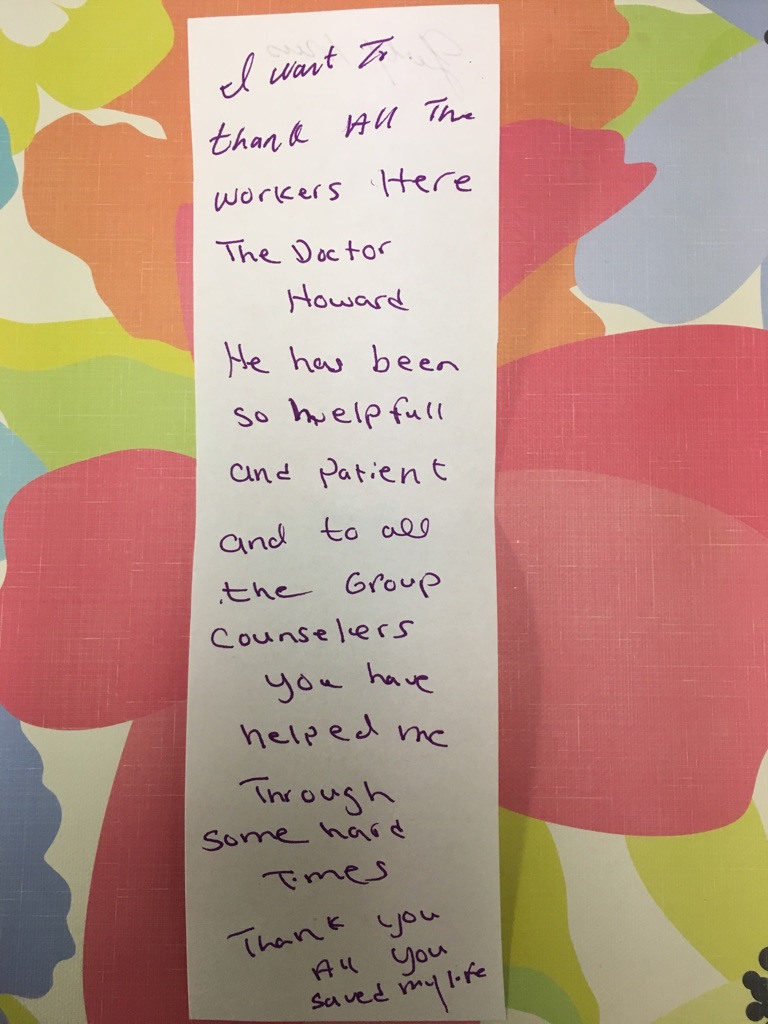 I want To
thank All The
workers Here
The Doctor
Howard
He has been
so helpfull
and patient
and to all
the Group
Counselers
you have
helped me
Through
some hard
Times
Thank you
All you
saved my life